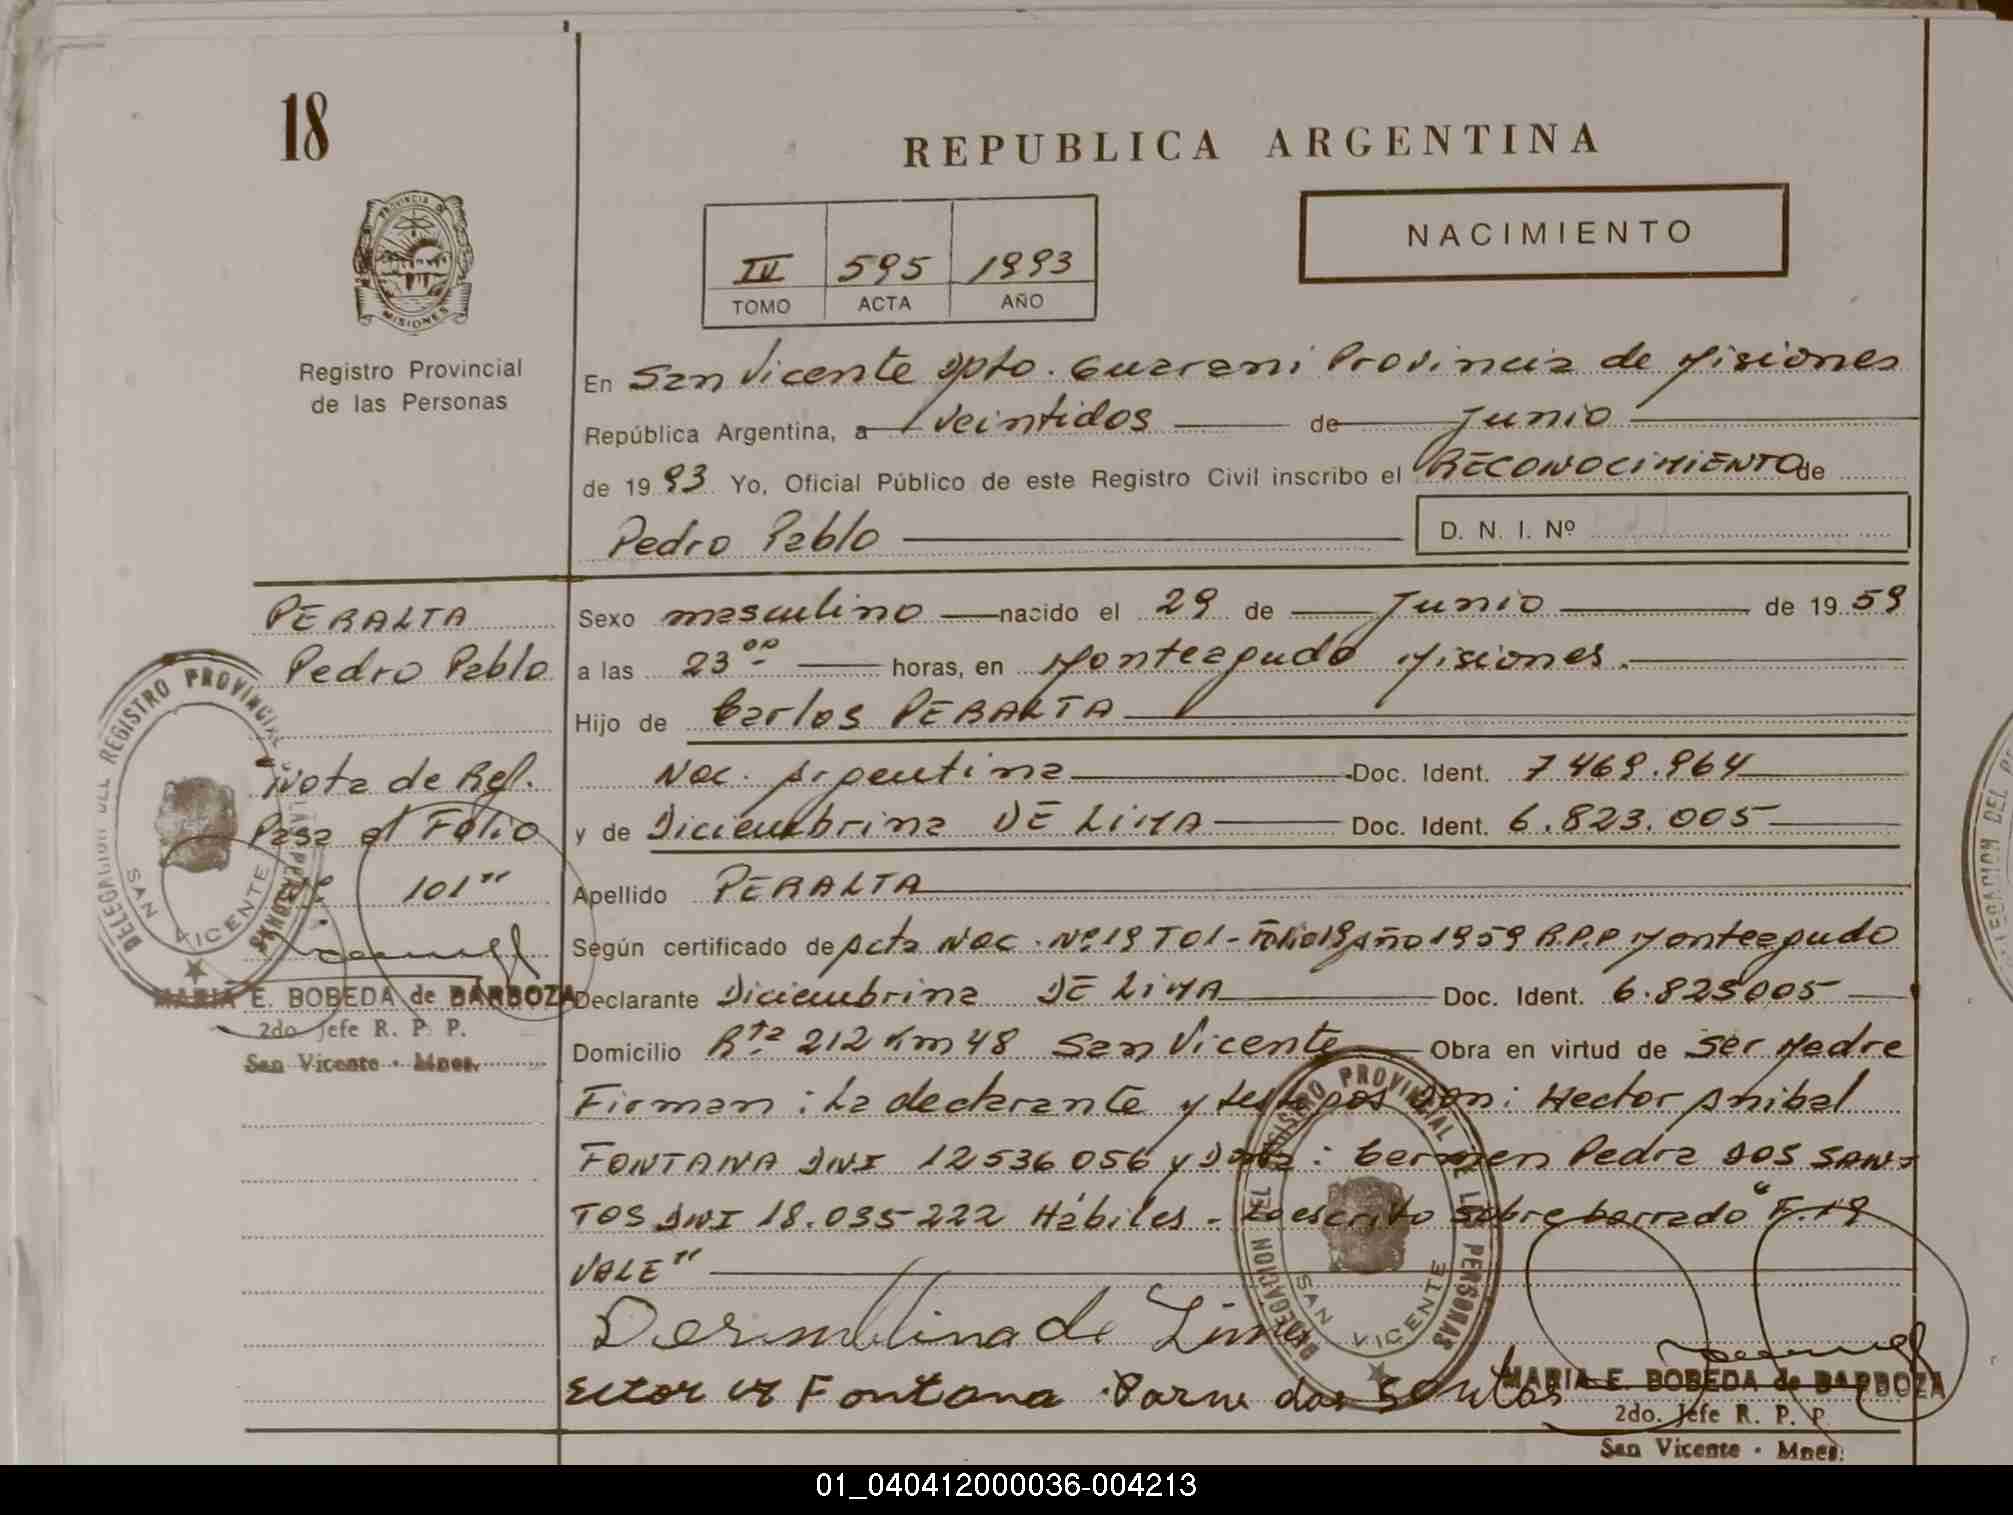 18
REPUBLICA ARGENTINA
NACIMIENTO
IV 595 1993
TOMO ACTA AÑO
PROVINCIA DE
MISIONES
Registro Provincial
de las Personas
En San Vicente Dpto. Guarani Provincia de Misiones
República Argentina, a veintidos de Junio
de 1993 Yo, Oficial Público de este Registro Civil inscribo el RECONOCIMIENTO de
Pedro Pablo D. N. I. Nº
PERALTA
Pedro Pablo
Sexo masculino nacido el 29 de Junio de 1959
a las 23 00 horas, en Monteagudo Misiones.
Hijo de Carlos PERALTA
Nac. Argentina Doc. Ident. 7469.964
y de Diciembrina DE LIMA Doc. Ident. 6.823.005
Apellido PERALTA
Según certificado de Acta Nac. Nº 19 T01-Folio 19 Año 1959 R.P.P Monteagudo
Declarante Diciembrina DE LIMA Doc. Ident. 6.823005
Domicilio Rta 212 Km 48 San Vicente Obra en virtud de ser Madre
Firman: La declarante y testigos Don: Hector Anibal
FONTANA DNI 12536056 y Doña: Carmen Pedra DOS SAN-
TOS DNI 18.035222 Hábiles - Lo escrito sobre borrado "F.19
VALE"
"Nota de Ref.
Pasa al Folio
Nº 101"
MARIA E. BOBEDA de BARBOZA
2do. Jefe R. P. P.
San Vicente - Mnes.
DELEGACION DEL REGISTRO PROVINCIAL DE LAS PERSONAS
SAN VICENTE
de Lima
Ector A Fontana dos Santos
DELEGACION DEL REGISTRO PROVINCIAL DE LAS PERSONAS
SAN VICENTE
MARIA E. BOBEDA de BARBOZA
2do. Jefe R. P. P.
San Vicente - Mnes.
01_040412000036-004213